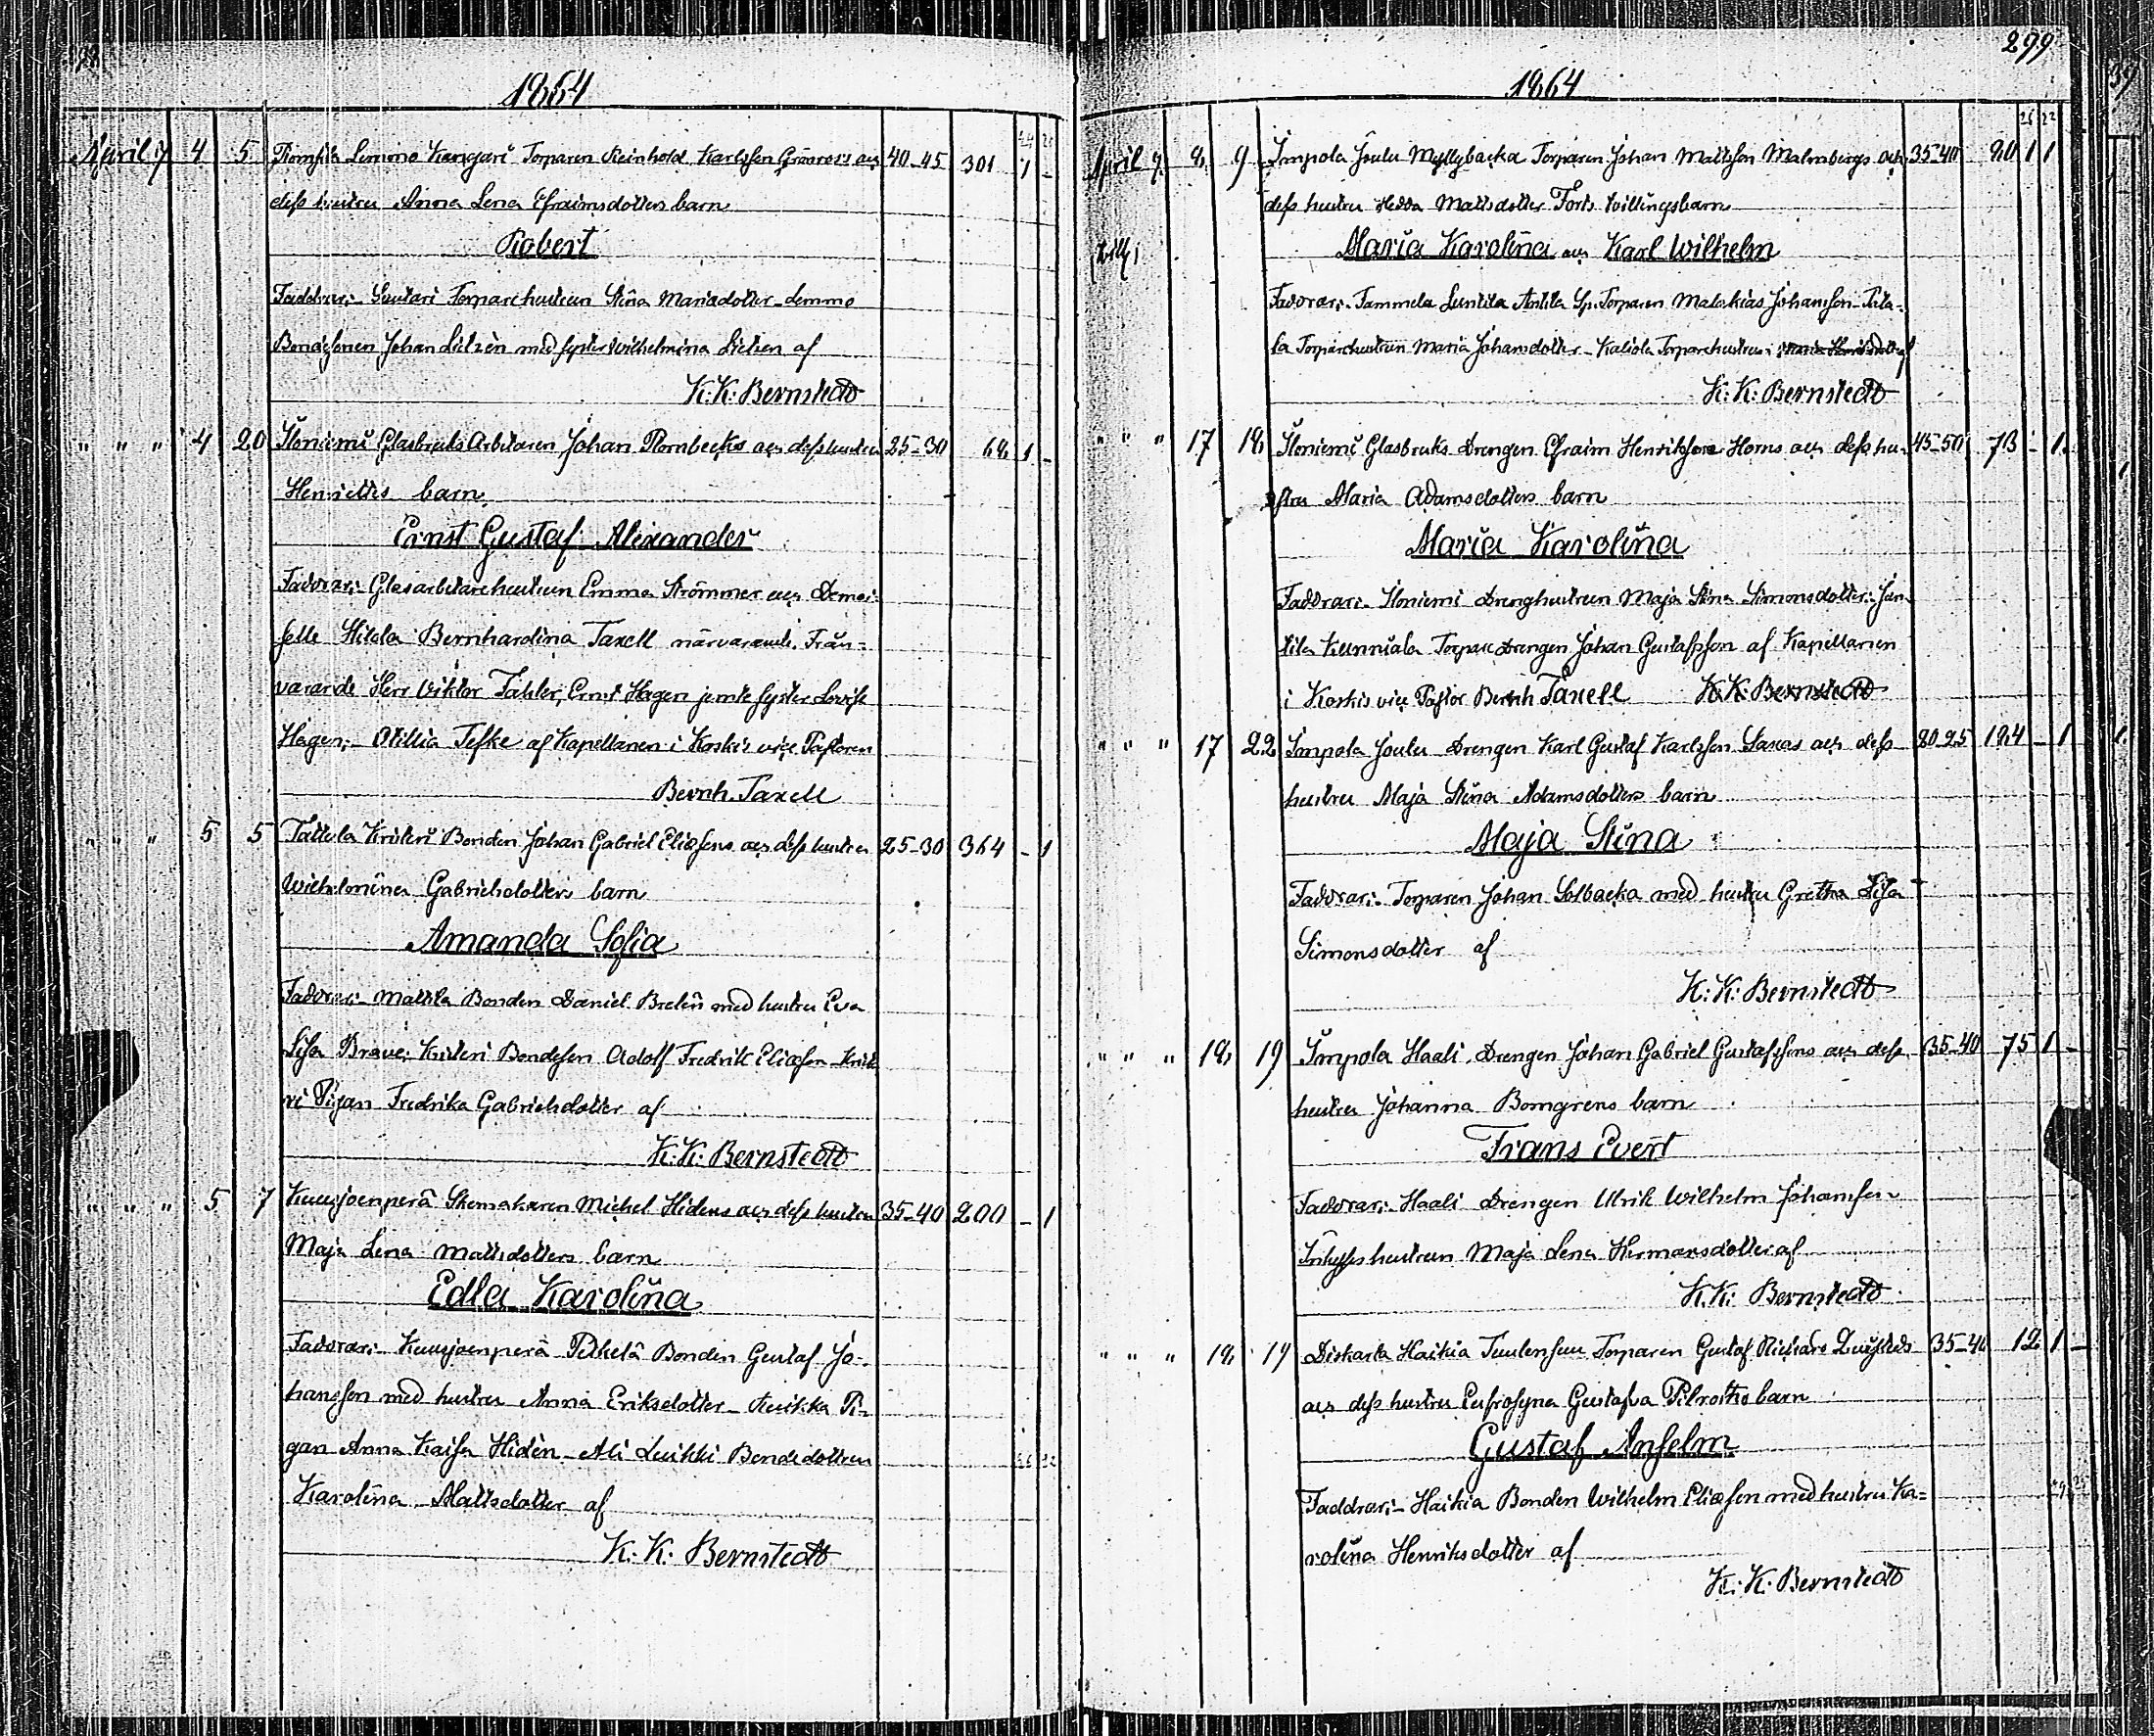 298
1864
April 4 5 Lemmo Kangari Torparen Reinhold Karlsson Gröönroos och 40-45 301 1 -
dess hustru Anna Lena Efraimsdotters barn
Robert
Faddrar:- Suutari Torparehustrun Stina Mariadotter - Lemmo
Bondesonen Johan Lilzèn med syster Wilhelmina Lilzen af
K: K: Bernstedt
" " " 4 20 Iloniemi Glasbruks Arbetaren Johan Rornbecks och dess hustru 25-30 68 1 -
Henriettes barn
Ernst Gustaf Alexander
Faddrar:- Glasarbetarehustrun Emma Strömmer och Demoi-
selle Hilda Bernhardina Taxell närvarande. Från-
varande Herr Viktor Tahler, Ernst Hagen jemte syster Lovise
Hagen;- Otillia Tefke af Kapellanen i Koskis vice Pastoren
Bernh. Taxell
" " " 5 5 Tattula Krileri Bonden Johan Gabriel Eliassons och dess hustru 25-30 364 - 1
Wilhelmina Gabrielsdotters barn
Amanda Sofia
Faddrar:- Mattila Bonden Daniel Brelin med hustru Eva
Lisa Brave; Bondeson Adolf Fredrik Eliasson
Pigan Fredrika Gabrielsdotter af
K: K: Bernstedt
" " " 5 7 Kuusjoenperä Skomakaren Michel Hidens och dess hustru 35-40 200 - 1
Maja Lena Mattsdotters barn
Edla Karolina
Faddrar:- Kuusjoenperä Bonden Gustaf Jo-
hansson med hustru Anna Eriksdotter - Kuikka Pi-
gan Anna Kaisa Hidèn - Ali Luikki Bondedottren
Karolina Mattsdotter af
K: K: Bernstedt
299
1864
April 9 Impola Joulu Myllybacka Torparen Johan Mattsson Malmbergs och 35-40 20 1 1
dess hustru Hedda Mattsdotter Forts tvillingsbarn
Maria Karolina och Karl Wilhelm
Faddrar:- Tammela Antila Torparen Malakias Johansson
Torparehustrun Maria Johansdotter - Kaliola Torparehustrun
K: K: Bernstedt
" " " 17 18 Iloniemi Glasbruks Drengen Efraim Henriksson Horns och dess hu- 45-50 73 - 1
stru Maria Adamsdotters barn
Maria Karolina
Faddrar:- Iloniemi Drenghustrun Maja Stina Simonsdotter:
Torpare Drengen Johan Gustafsson af Kapellanen
i Koskis vice Pastor Bernh Taxell K. K: Bernstedt
" " " 17 22 Impola Joulu Drengen Karl Gustaf Karlsson Saxas och dess 20-25 124 - 1
hustru Maja Stina Adamsdotters barn
Maja Stina
Faddrar:- Torparen Johan Solbacka med hustru Gretha Lisa
Simonsdotter af
K: K: Bernstedt
" " " 18 19 Impola Haali Drengen Johan Gabriel Gustafssons och dess 35-40 75 1 -
hustru Johanna Bomgrens barn
Frans Evert
Faddrar:- Haali Drengen Ulrik Wilhelm Johansson
Inhyses hustrun Maja Lena Hermansdotter af
K. K: Bernstedt
" " " 18 19 Haikia Torparen Gustaf Richard 35-40 12 1 -
och dess hustru Eufrosyna Gustafva barn
Gustaf Anselm
Faddrar:- Haikia Bonden Wilhelm Eliasson med hustru Ka-
rolina Henriksdotter af
K: K: Bernstedt